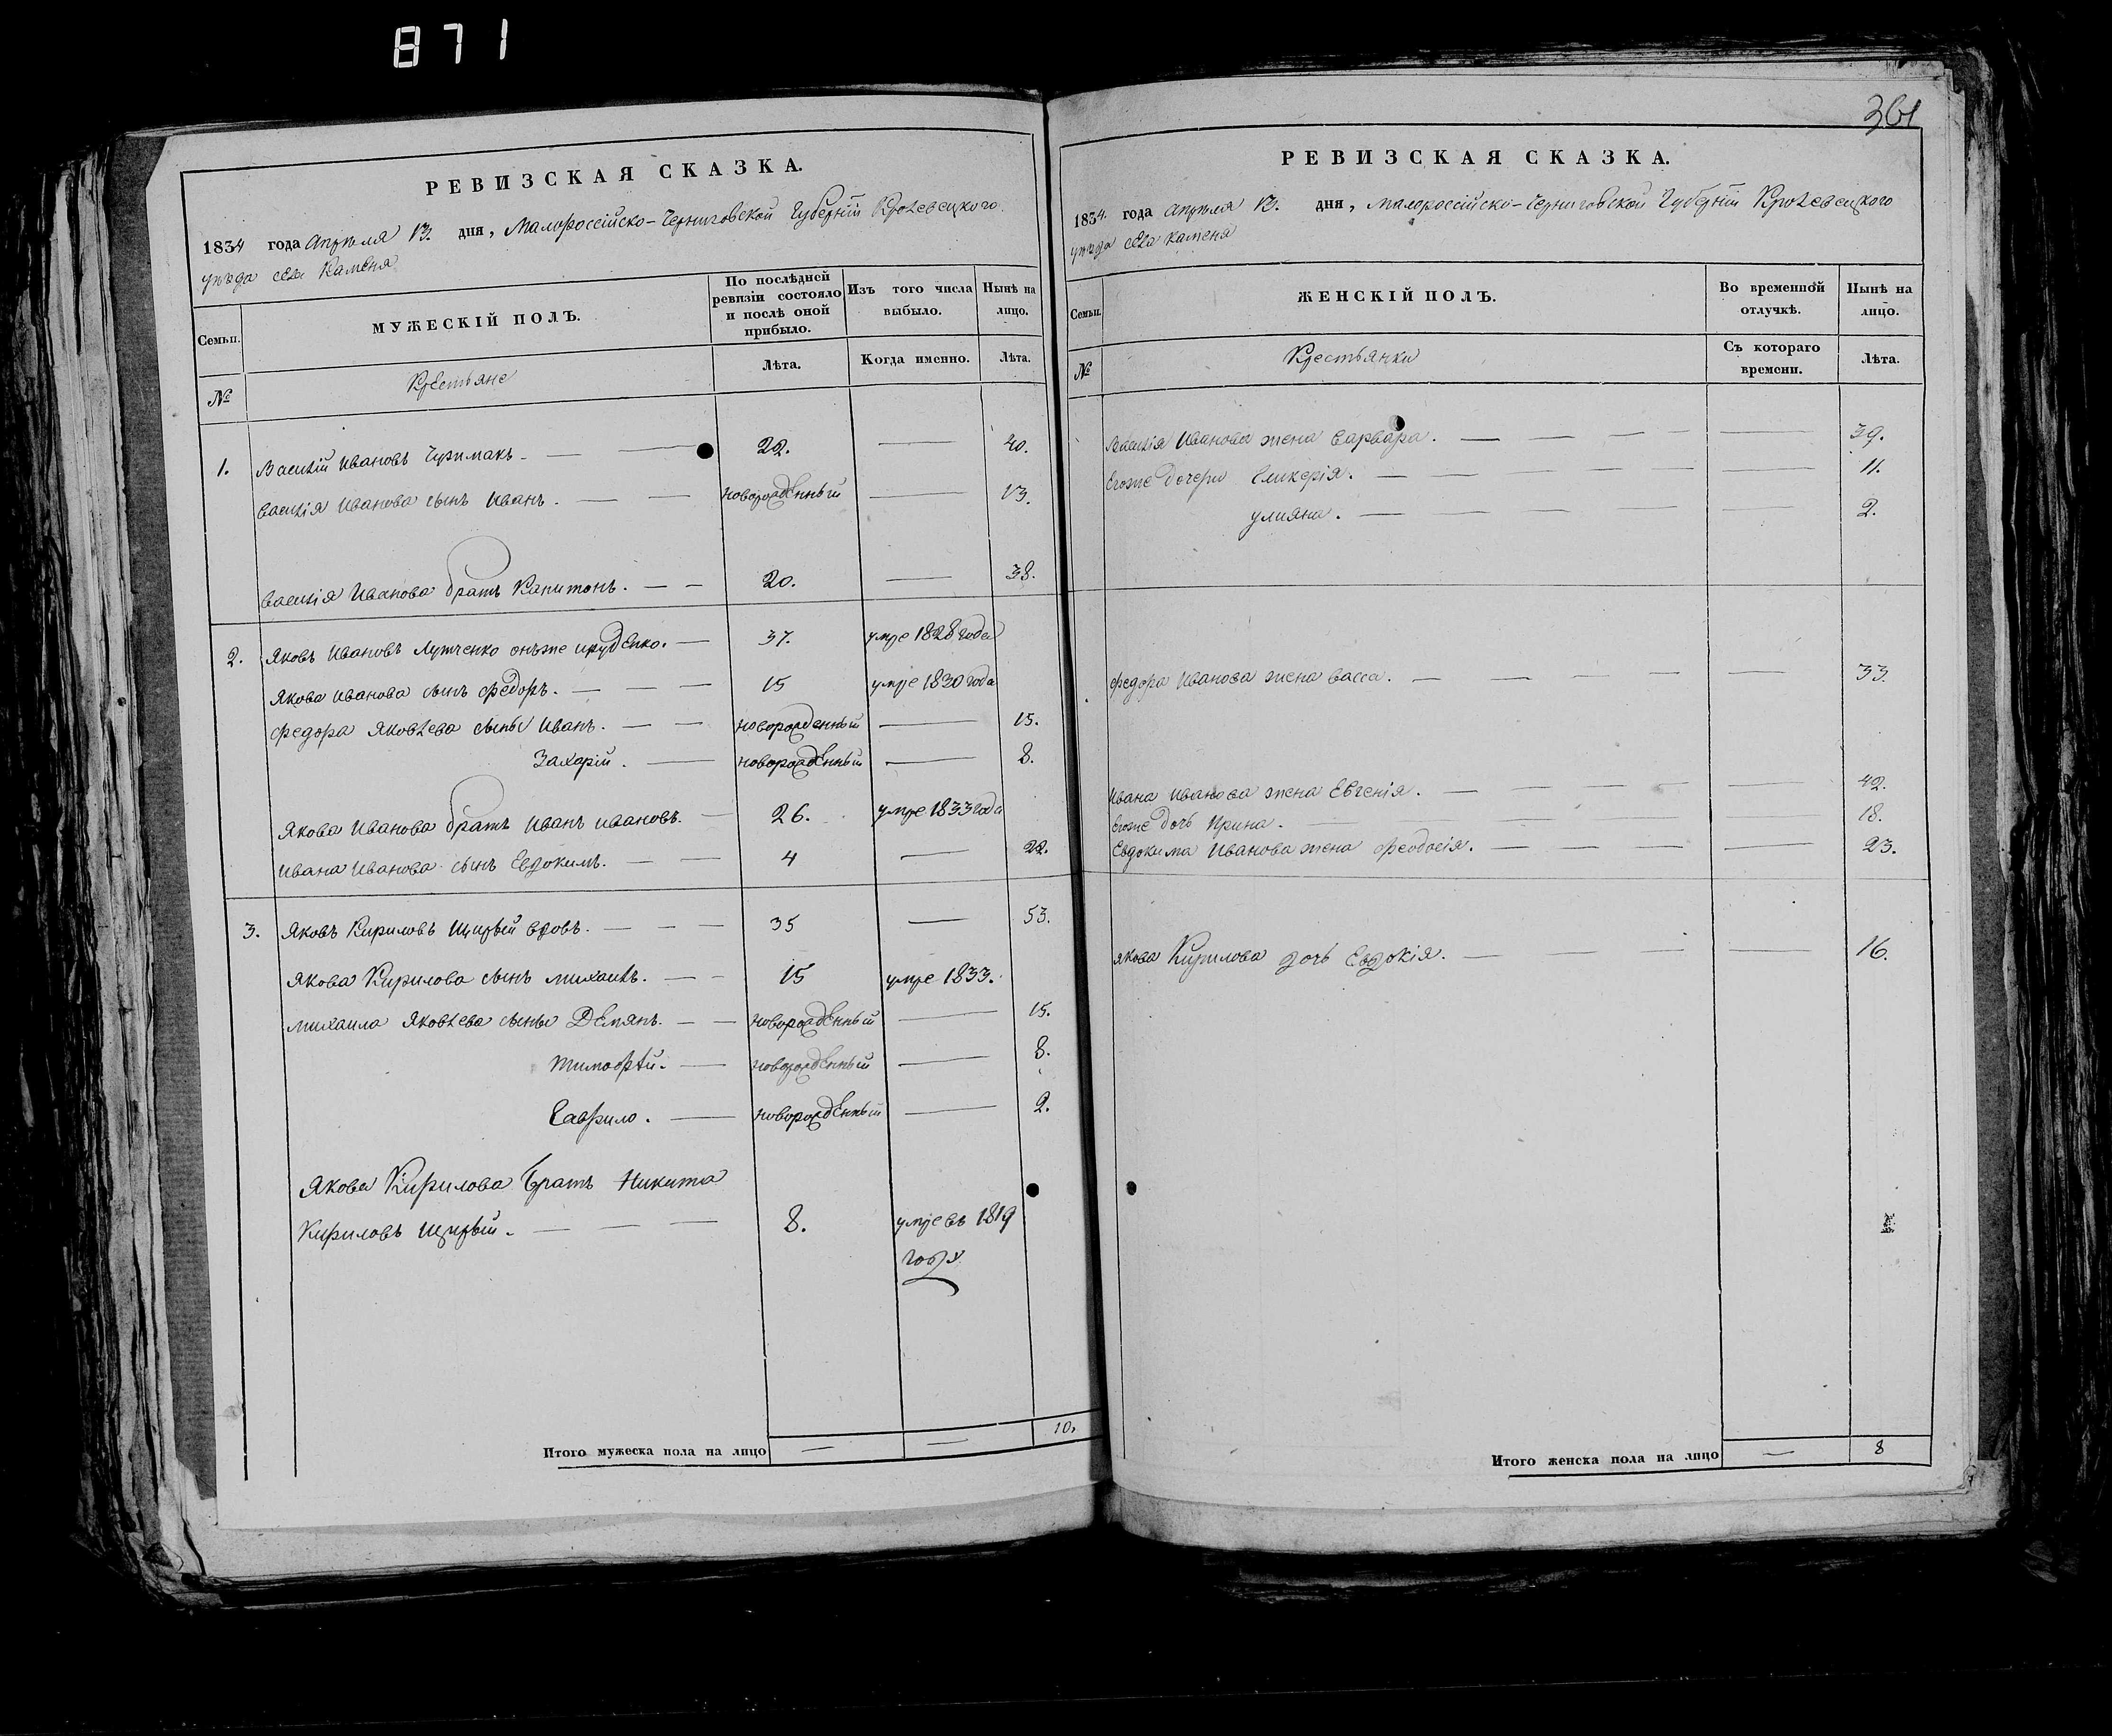 871
361
РЕВИЗСКАЯ СКАЗКА.
1834 года Апрѣля 13. дня, Малороссійско-Черниговской Губерніи Кролевецкого
уѣзда села Каменя
Семьи. МУЖЕСКІЙ ПОЛЪ. По послѣдней ревизіи состояло и послѣ оной прибыло. Изъ того числа выбыло. Нынѣ на лицо.
№ Крестьяне Лѣта. Когда именно. Лѣта.
1. Василій Ивановъ — 22. — 40.
Василія Иванова сынъ Иванъ. — новорожденный — 13.
Василія Иванова братъ Капитонъ. — 20. — 38.
2. Яковъ Ивановъ онъже — 37. умре 1828 года
Якова Иванова сынъ Федоръ. — 15 умре 1830 года
Федора Яковлева сыны Иванъ. — новорожденный — 15.
Захарій. — новорожденный — 8.
Якова Иванова братъ Иванъ Ивановъ. — 26. умре 1833 года
Ивана Иванова сынъ Евдокимъ. — 4 — 22.
3. Яковъ Кириловъ Щирый вдовъ. — 35 — 53.
Якова Кирилова сынъ Михаилъ. — 15 умре 1833.
Михаила Яковлева сыны Демянъ. — новорожденный — 15.
Тимофѣй. — новорожденный — 8.
Гаврило. — новорожденный — 2.
Якова Кирилова братъ Никита
Кириловъ Щирый. — 8. умре въ 1819
году
Итого мужеска пола на лицо — — 10.
РЕВИЗСКАЯ СКАЗКА.
1834 года Апрѣля 13. дня, Малороссійско-Черниговской Губерніи Кролевецкого
уѣзда села Каменя
Семьи. ЖЕНСКІЙ ПОЛЪ. Во временной отлучкѣ. Нынѣ на лицо.
№ Крестьянки Съ котораго времени. Лѣта.
Василія Иванова жена Варвара. — — 39.
Егоже дочери Гликерія. — — 11.
Улияна. — — 2.
Федора Иванова жена Васса. — — 33.
Ивана Иванова жена Евгенія. — — 42.
Егоже дочь Ирина. — — 18.
Евдокима Иванова жена Феодосія. — — 23.
Якова Кирилова дочь Евдокія. — — 16.
Итого женска пола на лицо — 8